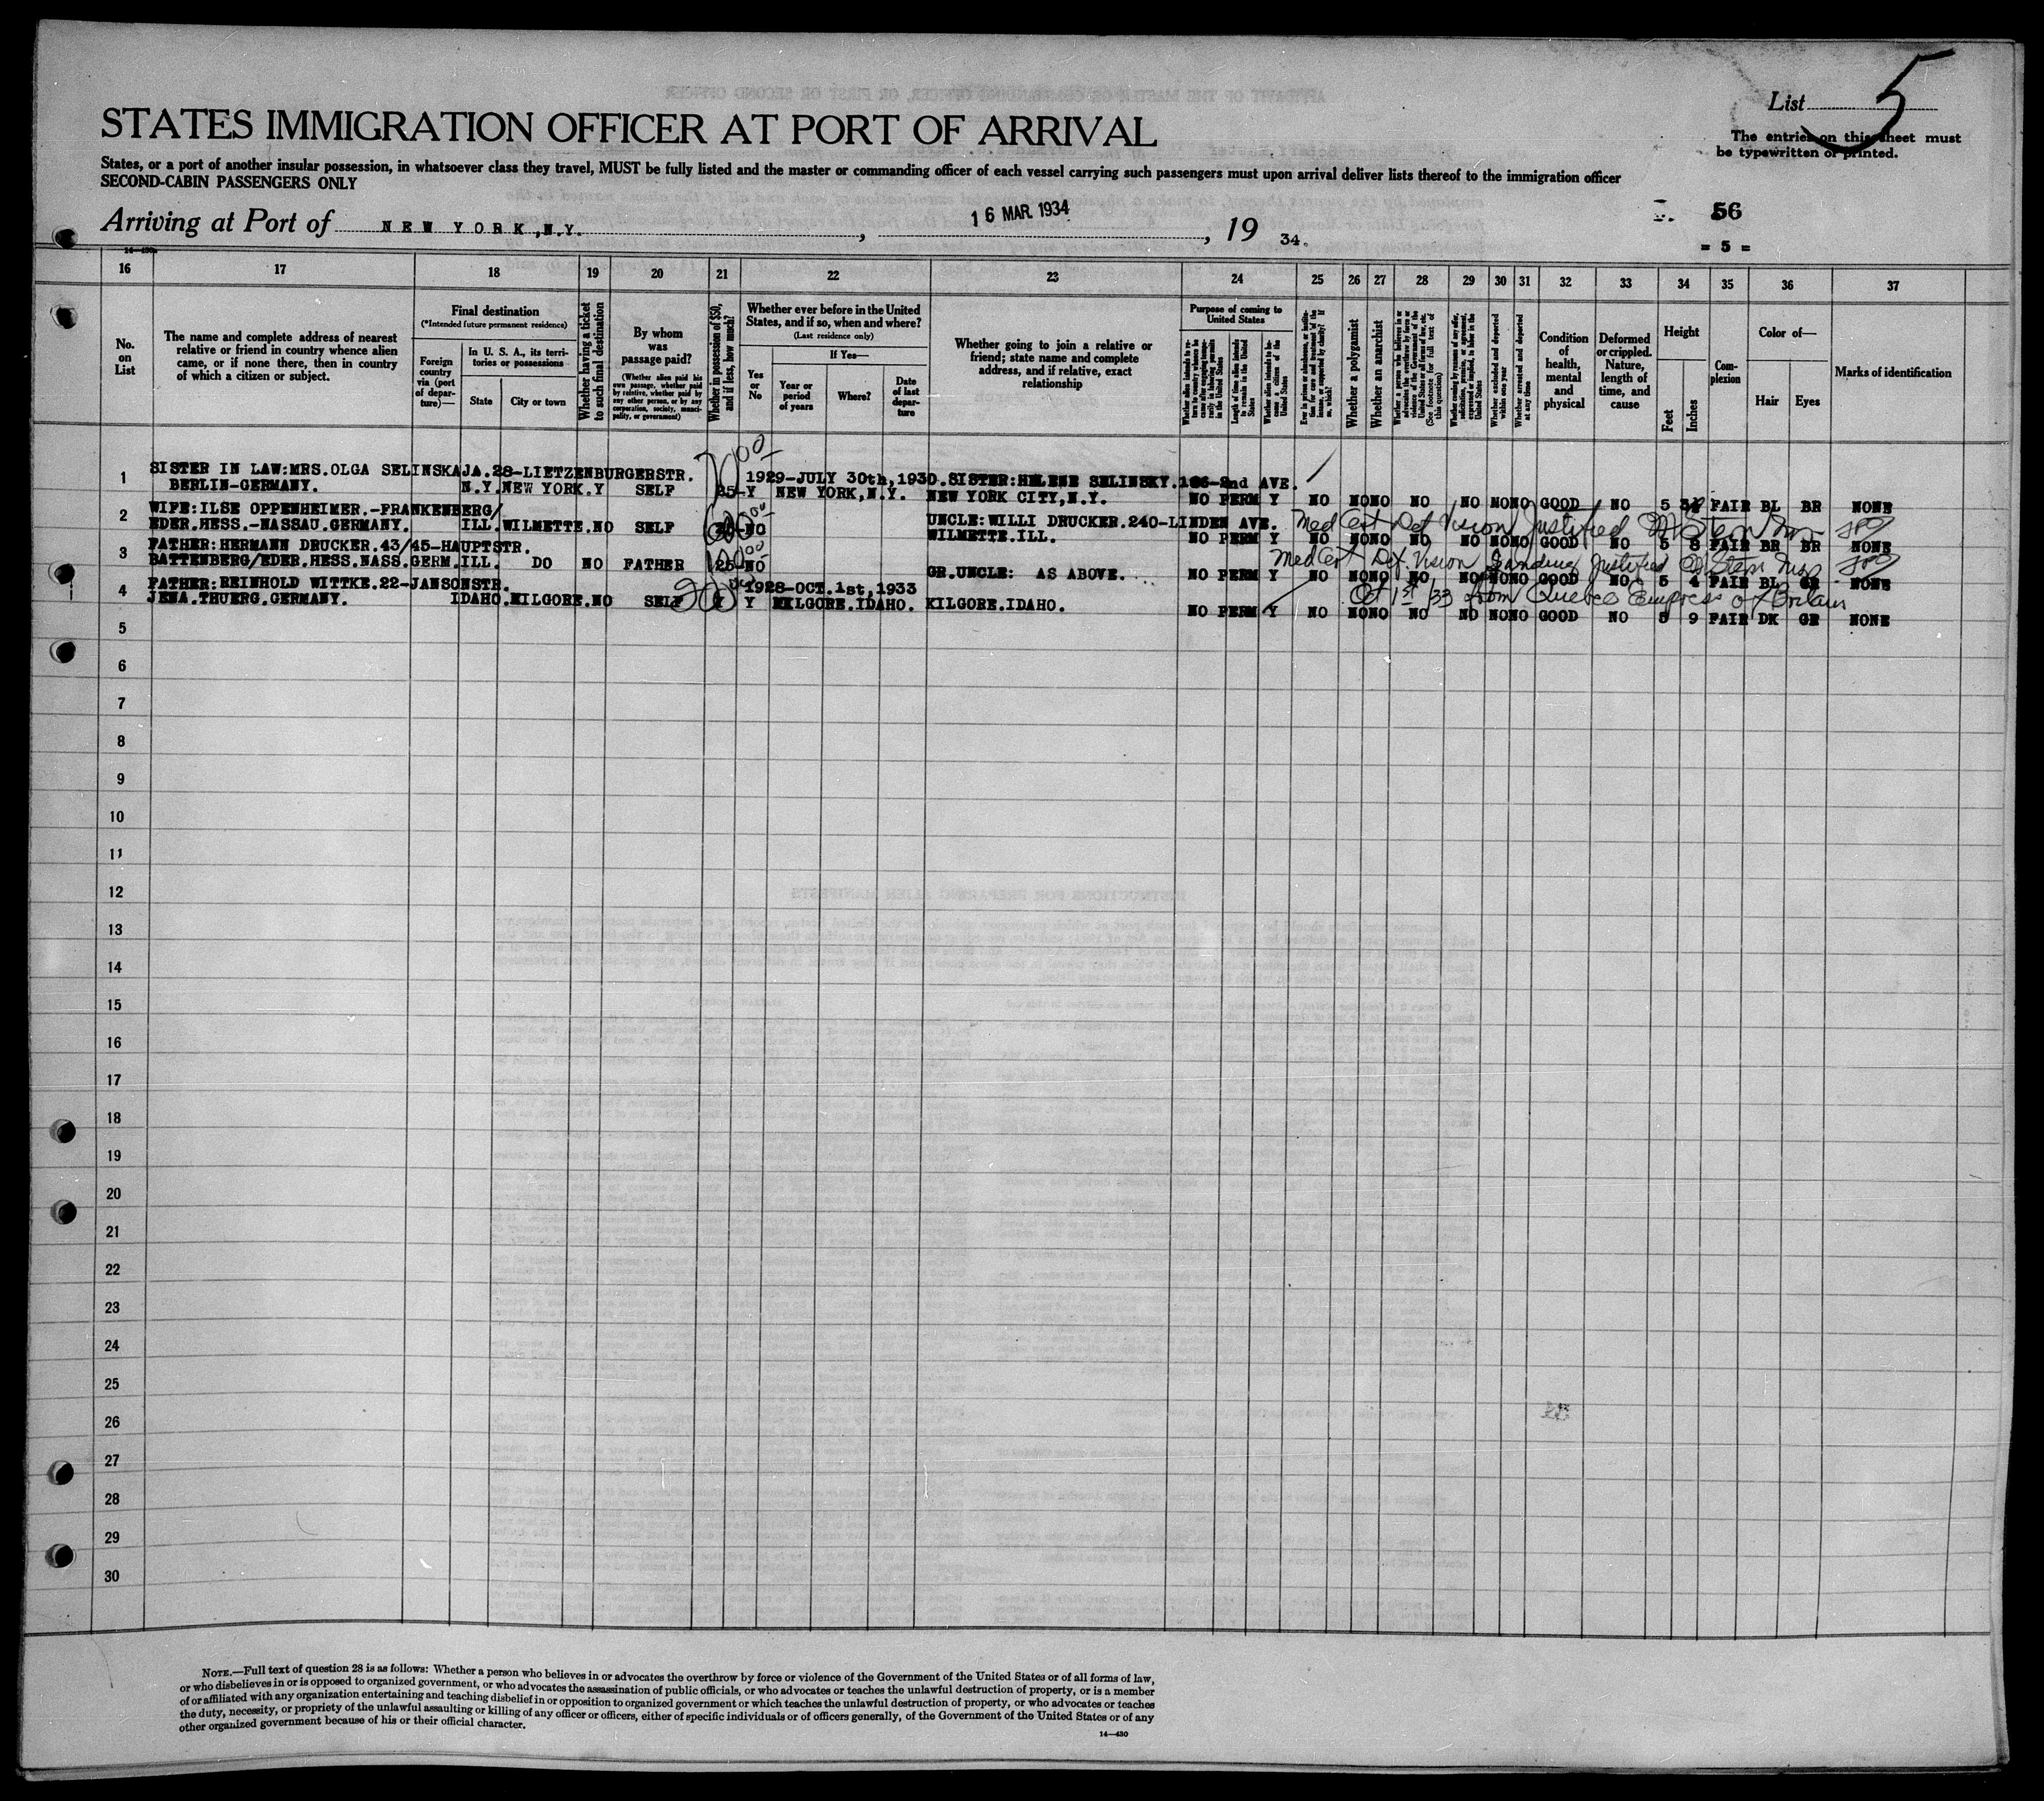 List 5
STATES IMMIGRATION OFFICER AT PORT OF ARRIVAL
The entries on this sheet must
be typewritten or printed.
States, or a port of another insular possession, in whatsoever class they travel, MUST be fully listed and the master or commanding officer of each vessel carrying such passengers must upon arrival deliver lists thereof to the immigration officer
SECOND-CABIN PASSENGERS ONLY
Arriving at Port of NEW YORK, N.Y. , 16 MAR. 1934 , 19 34.
56
= 5 =
16 17 18 19 20 21 22 23 24 25 26 27 28 29 30 31 32 33 34 35 36 37
No. on List
The name and complete address of nearest relative or friend in country whence alien came, or if none there, then in country of which a citizen or subject.
Final destination
(*Intended future permanent residence)
Foreign country via (port of departure)—
In U. S. A., its territories or possessions
State
City or town
Whether having a ticket to such final destination
By whom was passage paid?
(Whether alien paid his own passage, whether paid by relative, whether paid by any other person, or by any corporation, society, municipality, or government)
Whether in possession of $50, and if less, how much?
Whether ever before in the United States, and if so, when and where?
(Last residence only)
Yes or No
If Yes—
Year or period of years
Where?
Date of last departure
Whether going to join a relative or friend; state name and complete address, and if relative, exact relationship
Purpose of coming to United States
Length of time alien intends to remain in the United States
Whether alien intends to become a citizen of the United States
Whether a polygamist
Whether an anarchist
Whether excluded and deported within one year
Whether arrested and deported at any time
Condition of health, mental and physical
Deformed or crippled. Nature, length of time, and cause
Height
Feet
Inches
Complexion
Color of—
Hair
Eyes
Marks of identification
1 SISTER IN LAW:MRS.OLGA SELINSKAJA.28-LIETZENBURGERSTR. 1929-JULY 30th,1930. SISTER:HELENE SELINSKY. 2nd AVE.
BERLIN-GERMANY. N.Y. NEW YORK. Y SELF 25- Y NEW YORK,N.Y. NEW YORK CITY,N.Y. NO PERM Y NO NO NO NO NO NO NO GOOD NO 5 FAIR BL BR NONE
2 WIFE:ILSE OPPENHEIMER.-FRANKENBERG/ UNCLE:WILLI DRUCKER.240-LINDEN AVE. Med Cert Def Vision Justified
EDER.HESS.-NASSAU.GERMANY. ILL. WILMETTE. NO SELF NO WILMETTE.ILL. NO PERM Y NO NO NO NO NO NO NO GOOD NO 5 8 FAIR BR BR NONE
3 FATHER:HERMANN DRUCKER.43/45-HAUPTSTR. Med Cert Def. Vision Landing Justified
BATTENBERG/EDER.HESS.NASS.GERM. ILL. DO NO FATHER 25- NO GR.UNCLE: AS ABOVE. NO PERM Y NO NO NO NO NO NO NO GOOD NO 5 4 FAIR BL GR NONE
4 FATHER:REINHOLD WITTKE.22-JANSONSTR. 1928-OCT.1st,1933 Oct 1st 33 from Quebec Empress of Britain
JENA.THUERG.GERMANY. IDAHO. KILGORE. NO SELF Y Y KILGORE.IDAHO. KILGORE.IDAHO. NO PERM Y NO NO NO NO NO NO NO GOOD NO 5 9 FAIR DK GR NONE
5
6
7
8
9
10
11
12
13
14
15
16
17
18
19
20
21
22
23
24
25
26
27
28
29
30
NOTE.—Full text of question 28 is as follows: Whether a person who believes in or advocates the overthrow by force or violence of the Government of the United States or of all forms of law,
or who disbelieves in or is opposed to organized government, or who advocates the assassination of public officials, or who advocates or teaches the unlawful destruction of property, or is a member
of or affiliated with any organization entertaining and teaching disbelief in or opposition to organized government or which teaches the unlawful destruction of property, or who advocates or teaches
the duty, necessity, or propriety of the unlawful assaulting or killing of any officer or officers, either of specific individuals or of officers generally, of the Government of the United States or of any
other organized government because of his or their official character.
14—430